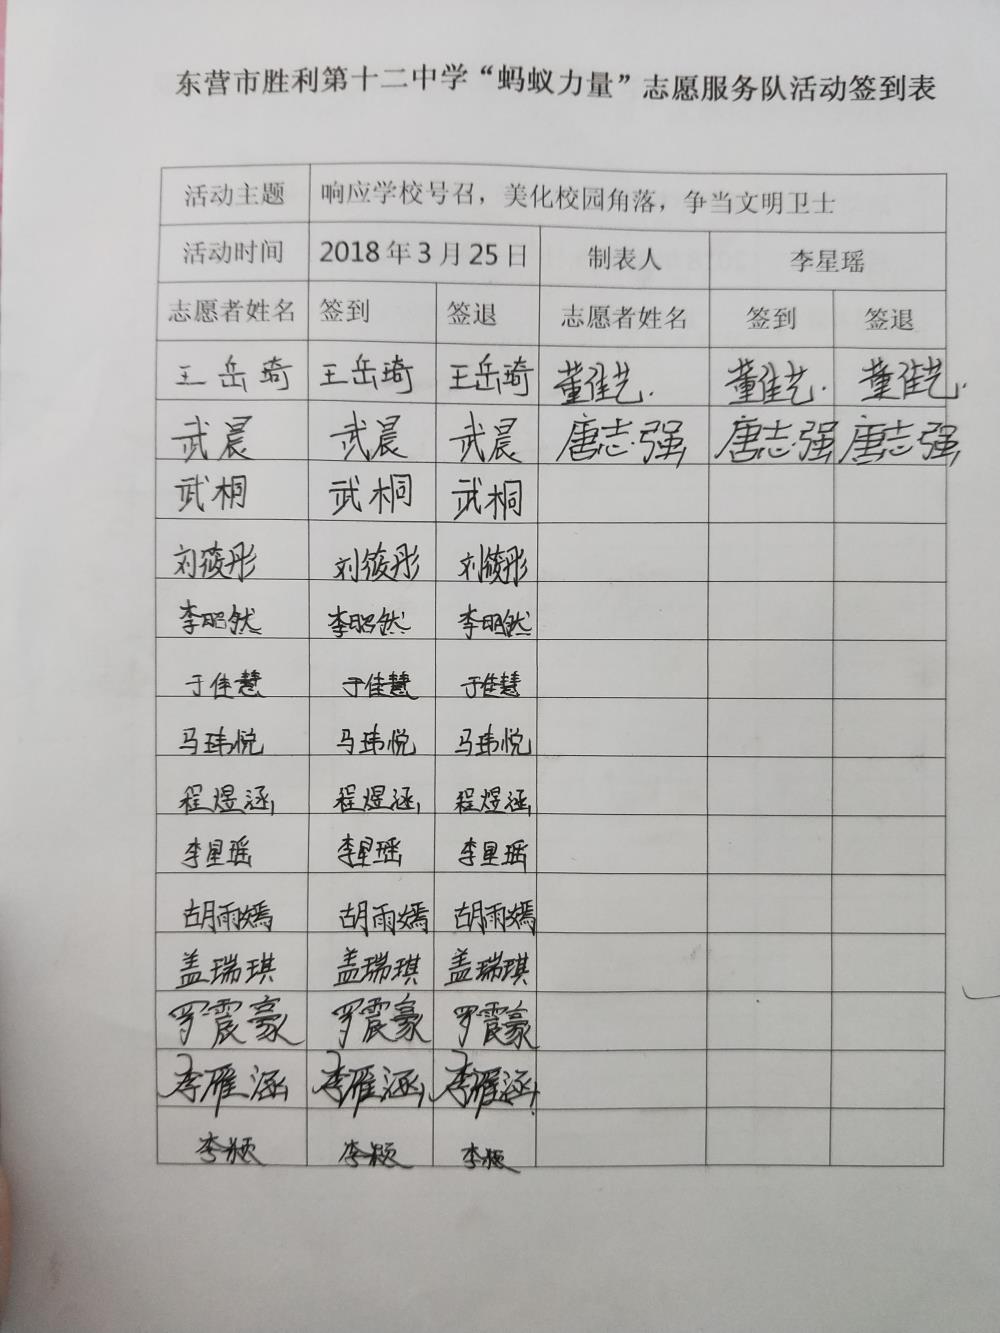 东营市胜利第十二中学“蚂蚁力量”志愿服务队活动签到表
活动主题 响应学校号召，美化校园角落，争当文明卫士
活动时间 2018年3月25日 制表人 李星瑶
志愿者姓名 签到 签退 志愿者姓名 签到 签退
王岳琦 王岳琦 王岳琦 董佳艺. 董佳艺. 董佳艺.
武晨 武晨 武晨 唐志强 唐志强 唐志强
武桐 武桐 武桐
刘筱彤 刘筱彤 刘筱彤
李昭然 李昭然 李昭然
于佳慧 于佳慧 于佳慧
马玮悦 马玮悦 马玮悦
程煜涵 程煜涵 程煜涵
李星瑶 李星瑶 李星瑶
胡雨嫣 胡雨嫣 胡雨嫣
盖瑞琪 盖瑞琪 盖瑞琪
罗震豪 罗震豪 罗震豪
李雁涵 李雁涵 李雁涵
李颖 李颖 李颖